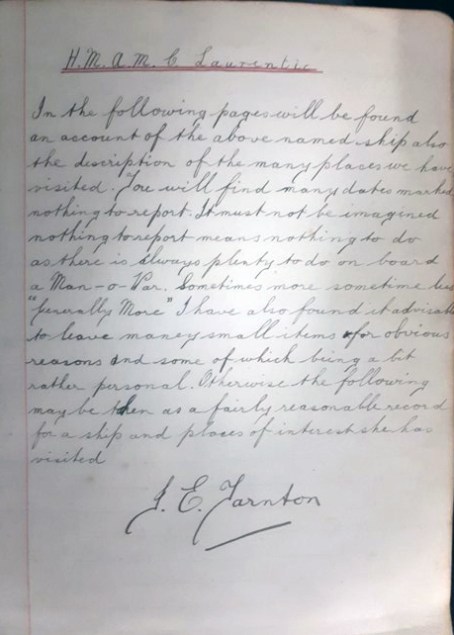 H.M.A.M.C Laurentic
In the following pages will be found
an account of the above named ship also
the description of the many places we have
visited. You will find many dates marked
nothing to report. It must not be imagined
nothing to report means nothing to do
as there is always plenty to do on board
a Man-o-War. Sometimes more sometime less
"Generally More" I have also found it advisable
to leave maney small items for obvious
reasons and some of which being a bit
rather personal. Otherwise the following
may be then as a fairly reasonable record
for a ship and places of interest she has
visited
J. E. Tarnton